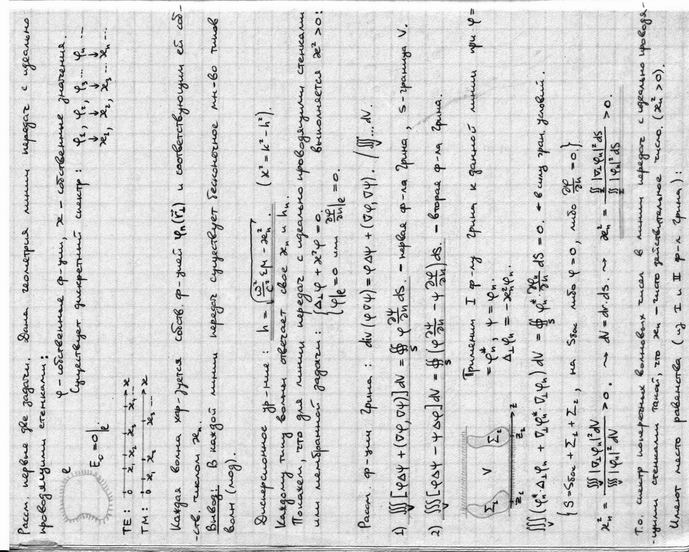 Рассм. первые две задачи. Дана геометрия линии передач с идеально
проводящими стенками:
φ - собственные ф-ции, ϰ - собственные значения.
Существует дискретный спектр: φ₁, φ₂, φ₃ ... φₙ ...
ϰ₁, ϰ₂, ϰ₃ ... ϰₙ ...
ℓ
E₀=0|ℓ
TE: 0 ϰ₁ ϰ₂ ϰ₃ ... ϰ
TM: 0 ϰ₁ ϰ₂ ϰ₃ ... ϰ
Каждая волна хар-зуется собств. ф-цией φₙ(r⃗⊥) и соответствующим ей соб-
ств. числом ϰₙ.
Вывод: В каждой линии передач существует бесконечное мн-во типов
волн (мод).
Дисперсионное ур-ние: h = √(ω²/c² εμ - ϰₙ²) . (ϰ²=k²-h²).
Каждому типу волны отвечает свое ϰₙ и hₙ.
Покажем, что для линии передач с идеально проводящими стенками
или мембранной задачи: выполняется ϰ²>0:
{Δ⊥φ + ϰ²φ=0
φ|ℓ=0 или ∂φ/∂n|ℓ=0.
Рассм. ф-лы Грина: div(φ∇ψ)=φΔψ+(∇φ,∇ψ). /∭...dV.
1) ∭[φΔψ+(∇φ,∇ψ)]dV = ∯ φ ∂ψ/∂n dS - первая ф-ла Грина, S-граница V.
2) ∭[φΔψ-ψΔφ]dV = ∯(φ ∂ψ/∂n - ψ ∂φ/∂n)dS - вторая ф-ла Грина.
Применим I ф-лу Грина к данной линии при φ=
=φₙ*, ψ=φₙ.
Δ⊥φₙ=-ϰₙ²φₙ.
Σ₁ V Σ₂
z₁ z₂ z
∭(φₙ* Δ⊥φₙ + ∇⊥φₙ* ∇⊥φₙ) dV = ∯ φₙ* ∂φₙ/∂n dS = 0. - в силу гран. условий.
{S=Sбок+Σ₁+Σ₂, на Sбок либо φ=0, либо ∂φ/∂n=0.}
ϰₙ² = ∭|∇⊥φₙ|²dV / ∭|φₙ|²dV >0. ⇝ dV=dz·dS. ⇝ ϰₙ² = ∬|∇⊥φₙ|²dS / ∬|φₙ|²dS >0.
Т.о. спектр поперечных волновых чисел в линии передач с идеально проводя-
щими стенками такой, что ϰₙ - чисто действительное число. (ϰₙ²>0).
Имеют место равенства (из I и II ф-л Грина):